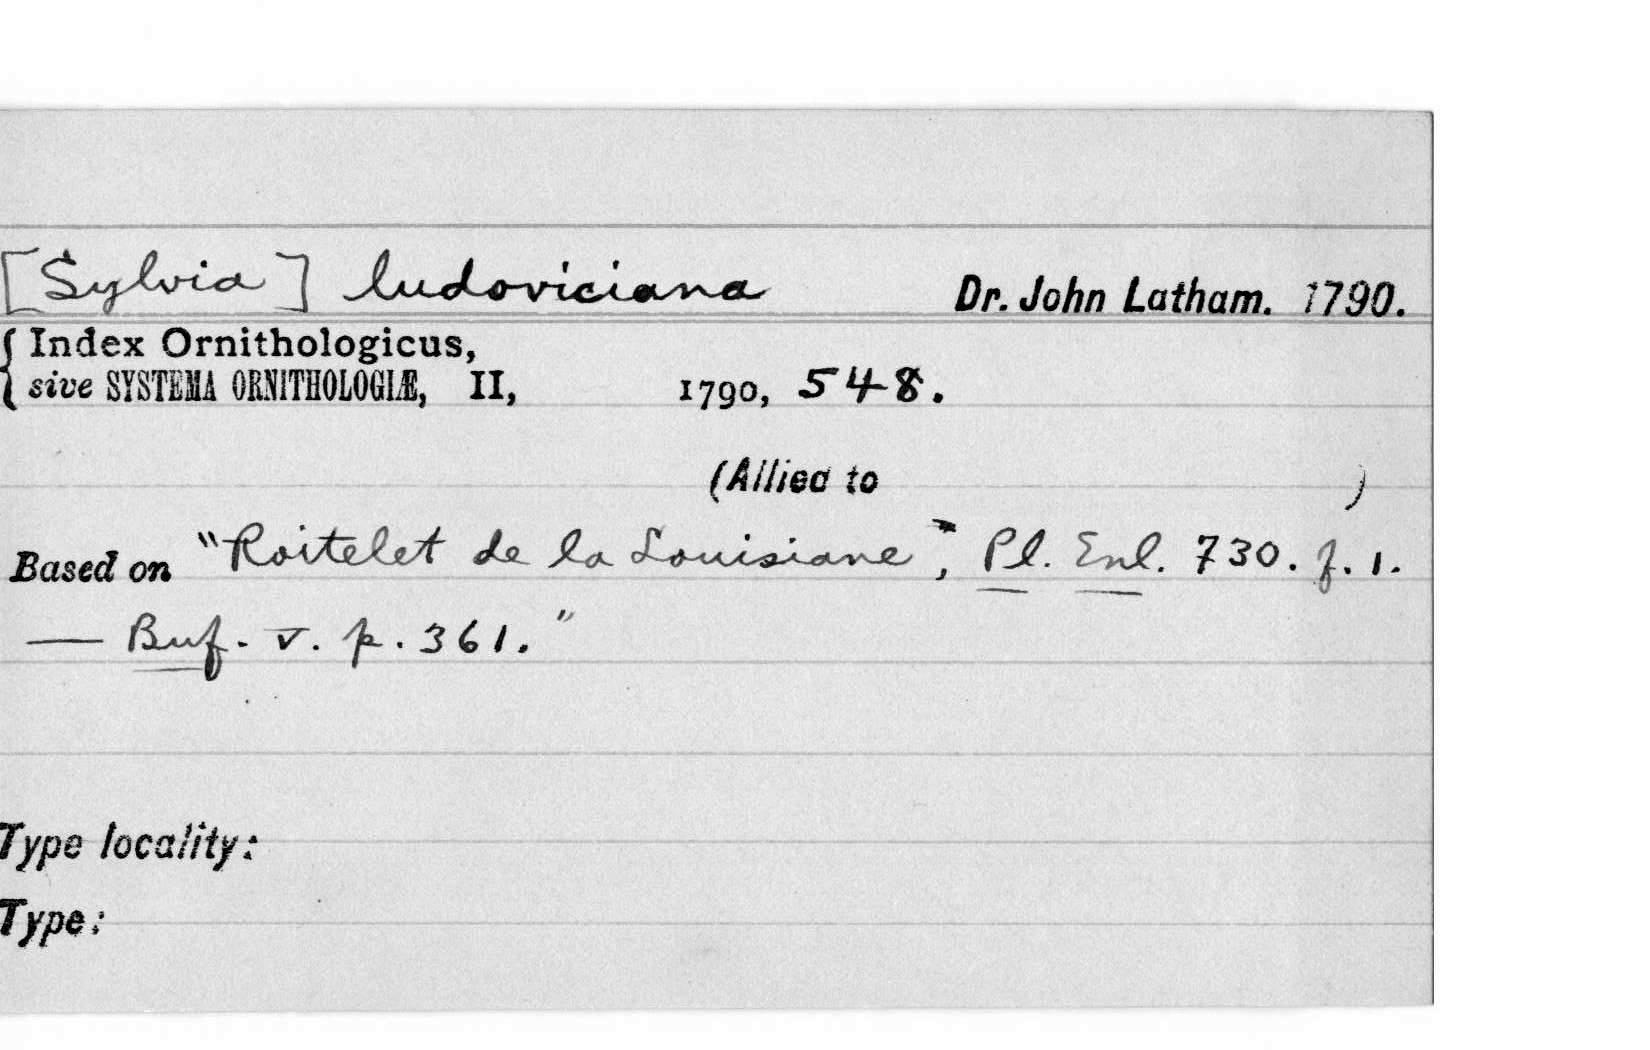 [Sylvia] ludoviciana Dr. John Latham. 1790.
{Index Ornithologicus,
sive SYSTEMA ORNITHOLOGIÆ, II, 1790, 548.
(Allied to )
Based on "Roitelet de la Louisiane", Pl. Enl. 730. f. 1.
— Buf. v. p. 361."
Type locality:
Type: